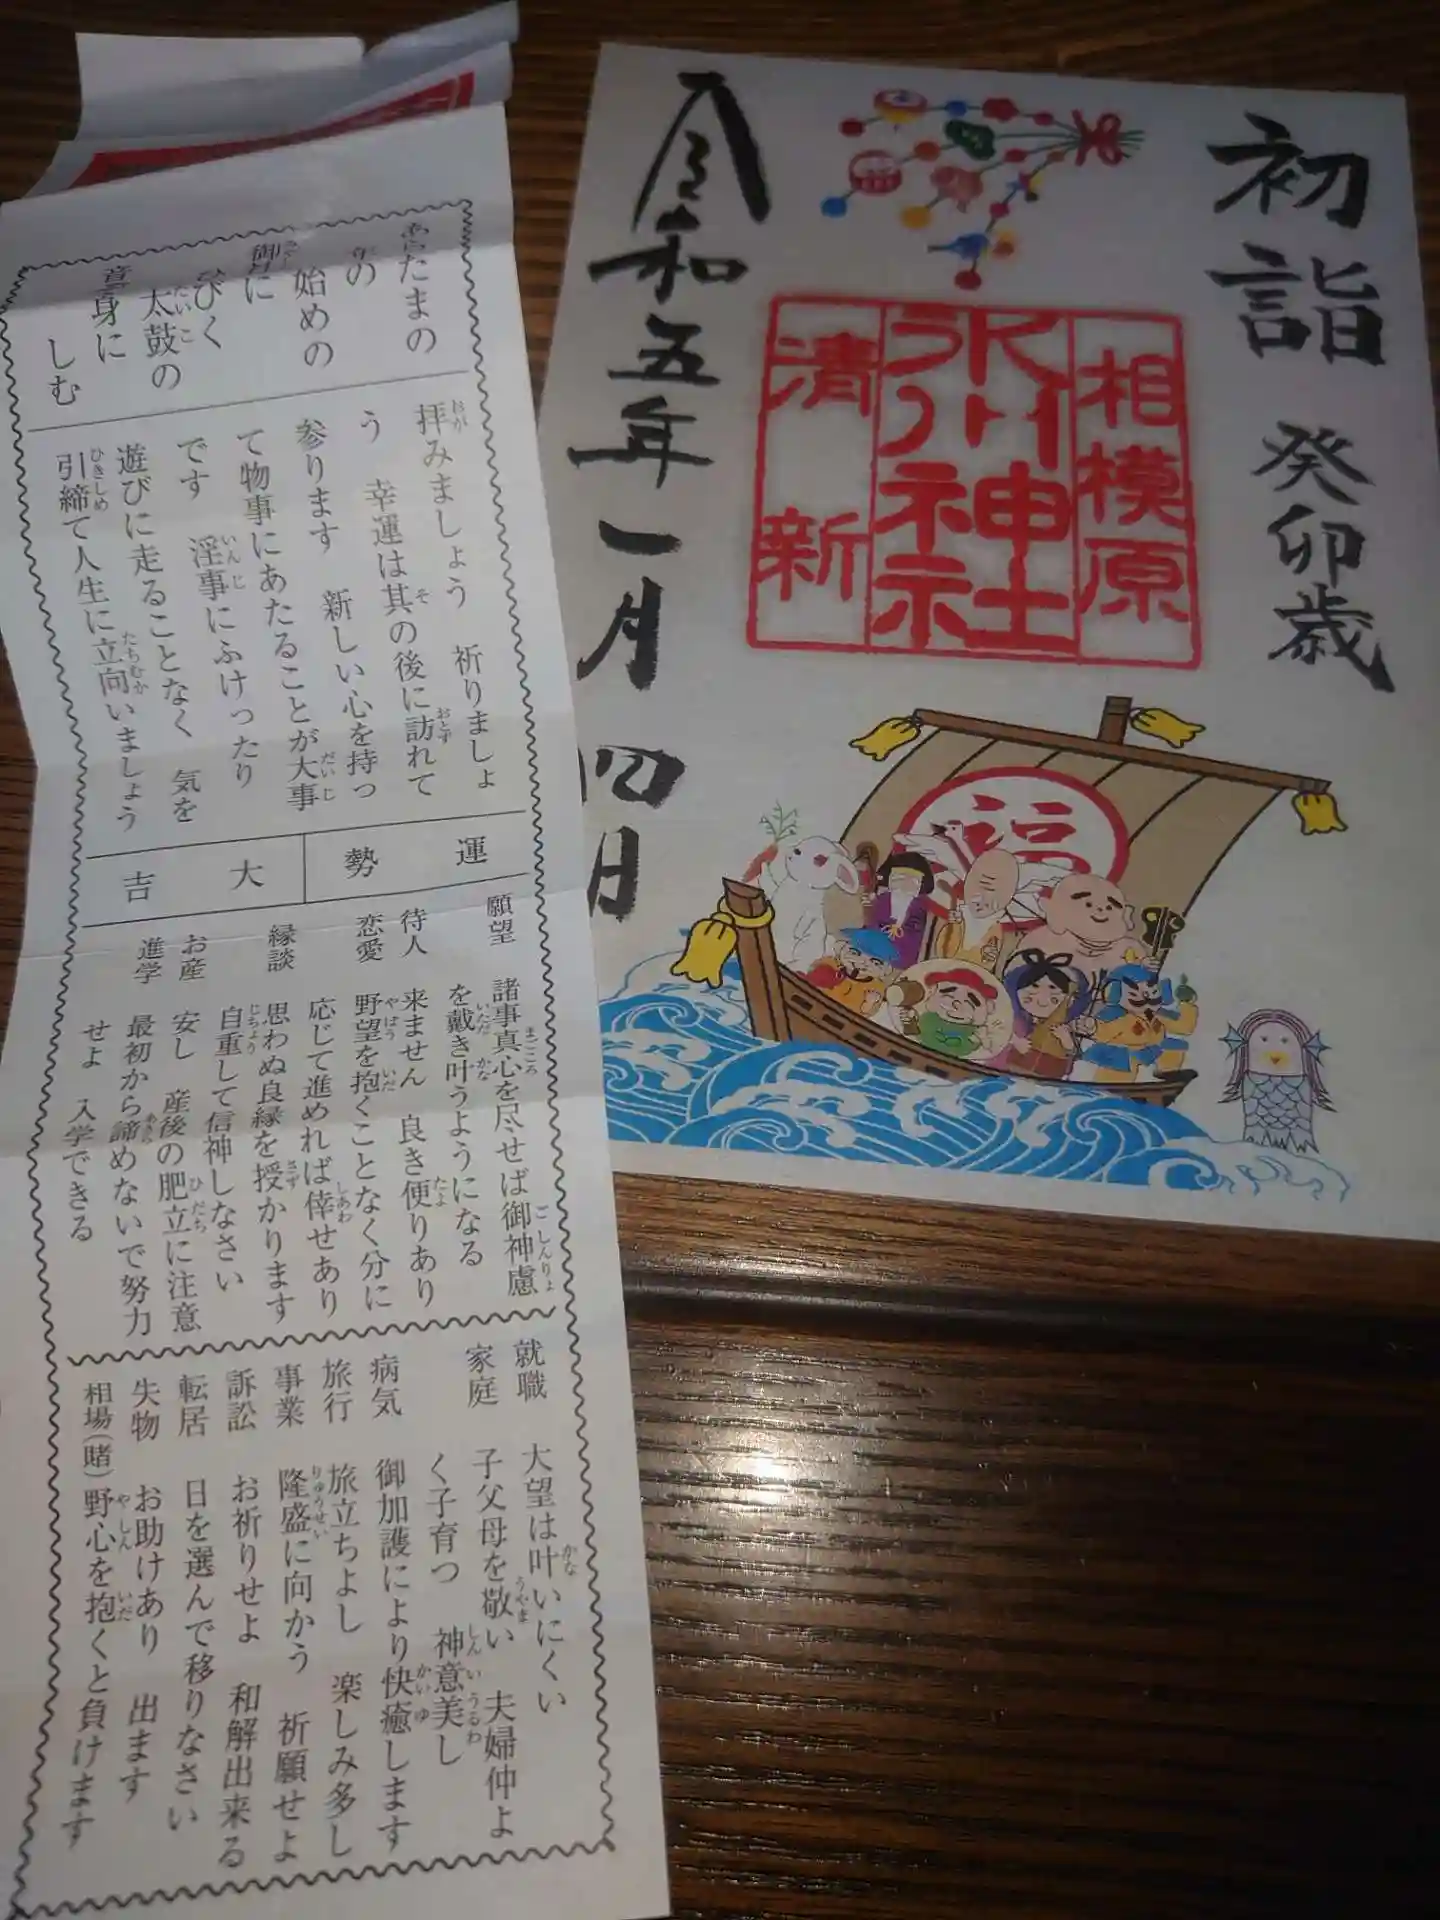 初詣 癸卯歳
相模原
氷川神社
清新
令和五年一月四日
福
あらたまの
年の
始めの
御に
ひびく
太鼓の
音身に
しむ
拝みましょう 祈りましょ
う 幸運は其の後に訪れて
参ります 新しい心を持っ
て物事にあたることが大事
です 淫事にふけったり
遊びに走ることなく 気を
引締て人生に立向いましょう
運勢
大吉
願望 諸事真心を尽せば御神慮
を戴き叶うようになる
待人 来ません 良き便りあり
恋愛 野望を抱くことなく分に
応じて進めれば倖せあり
縁談 思わぬ良縁を授かります
自重して信神しなさい
お産 安し 産後の肥立に注意
進学 最初から諦めないで努力
せよ 入学できる
就職 大望は叶いにくい
家庭 子父母を敬い 夫婦仲よ
く子育つ 神意美し
病気 御加護により快癒します
旅行 旅立ちよし 楽しみ多し
事業 隆盛に向かう 祈願せよ
訴訟 お祈りせよ 和解出来る
転居 日を選んで移りなさい
失物 お助けあり 出ます
相場(賭) 野心を抱くと負けます